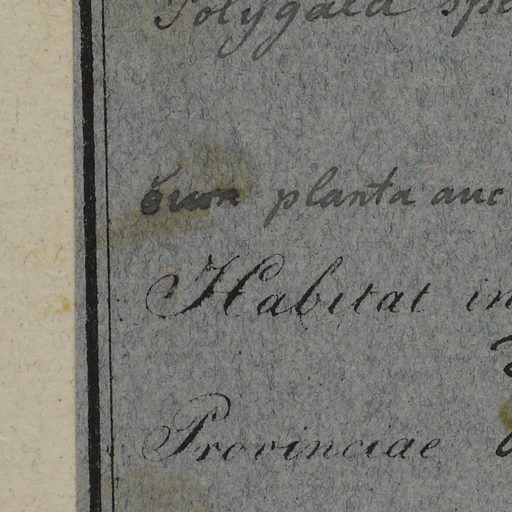 Polygala spe
cum planta auc
Habitat in
Provinciae